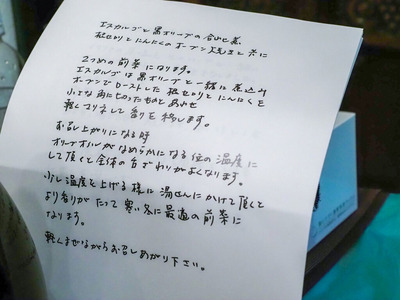 エスカルゴと黒オリーブの合わせ煮
根セロリとにんにくのオーブン焼きと共に
2つめの前菜になります。
エスカルゴは黒オリーブと一緒に煮込み
オーブンでローストした根セロリとにんにくを
小さな角に切ったものとあわせ
軽くマリネして香りを移します。
お召し上がりになる時
オリーブオイルがなめらかになる位の温度に
して頂くと全体の舌ざわりがよくなります。
少し温度を上げる様に湯せんにかけて頂くと
より香りがたって寒い冬に最適の前菜に
なります。
軽くまぜながらお召しあがり下さい。